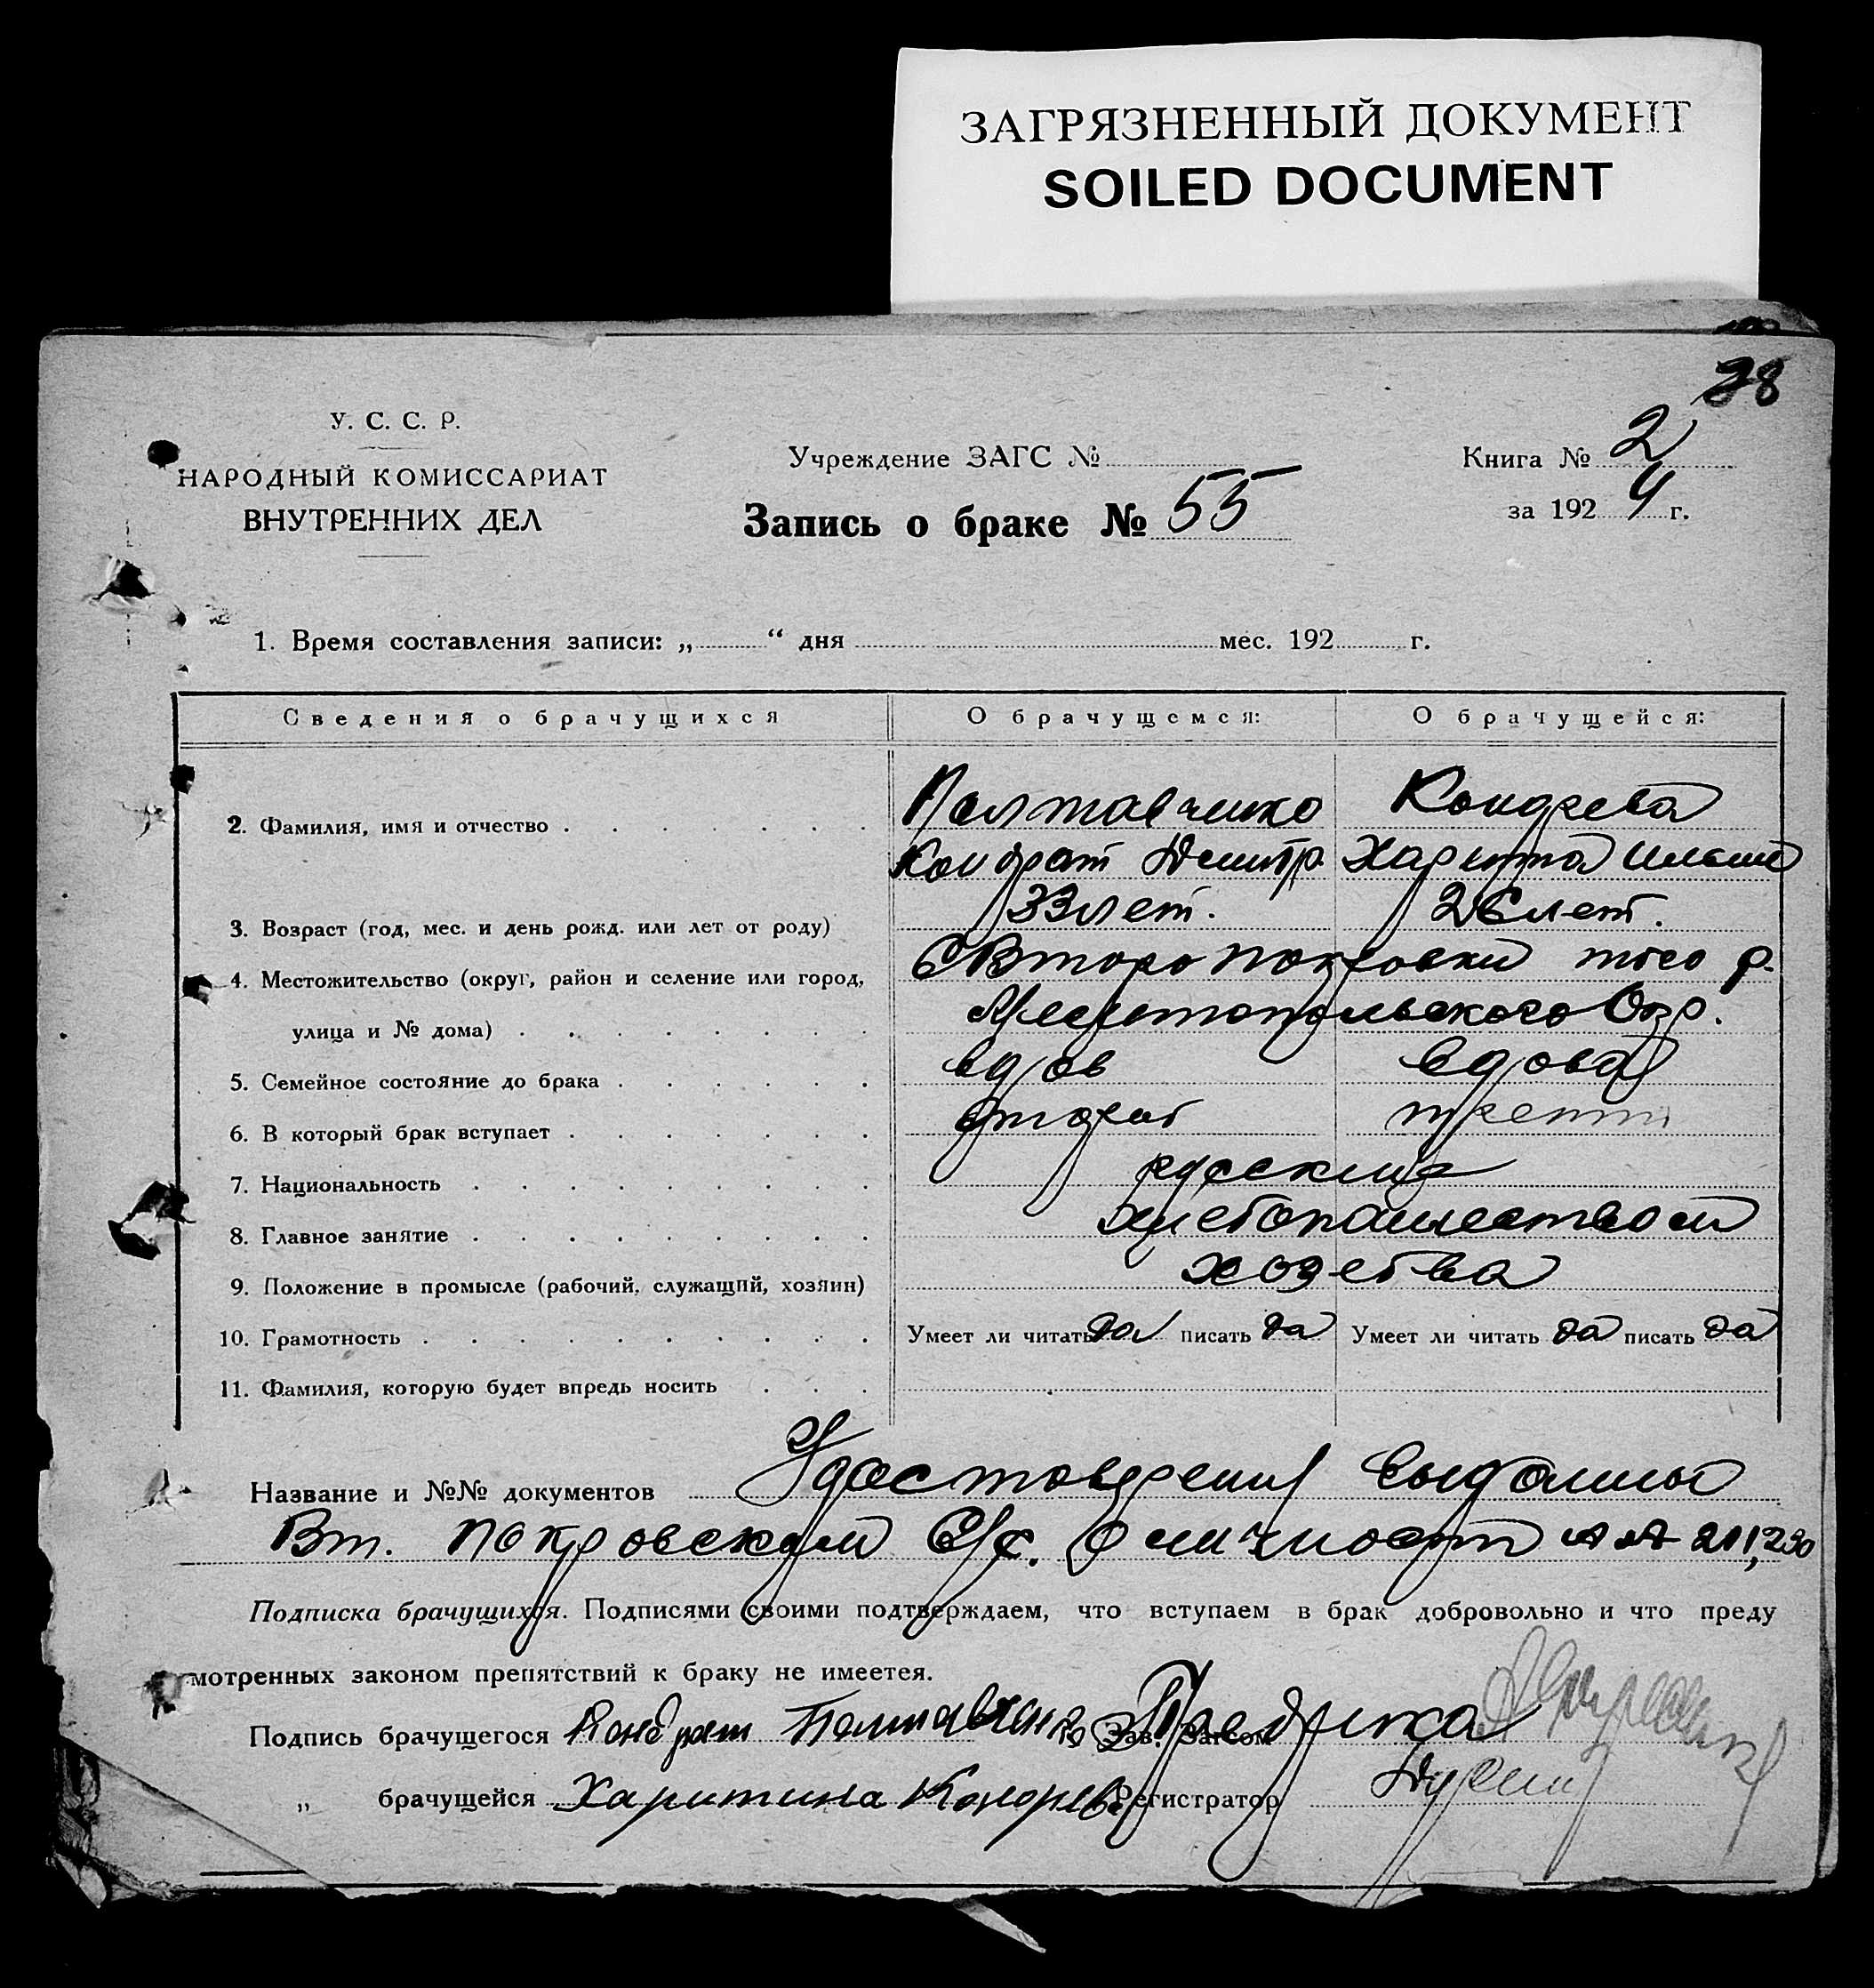 ЗАГРЯЗНЕННЫЙ ДОКУМЕНТ
SOILED DOCUMENT
28
У. С. С. Р.
НАРОДНЫЙ КОМИССАРИАТ
ВНУТРЕННИХ ДЕЛ
Учреждение ЗАГС №
Запись о браке № 55
Книга № 2
за 1924 г.
1. Время составления записи: „ “ дня мес. 192 г.
Сведения о брачущихся О брачущемся: О брачущейся:
2. Фамилия, имя и отчество Полтавченко Кондрева
Кондрат Дмитр. Харитина
3. Возраст (год, мес. и день рожд. или лет от роду) 33 лет. 26 лет.
4. Местожительство (округ, район и селение или город, С Второ Покровки того р.
улица и № дома) Мелитопольского Окр.
5. Семейное состояние до брака вдов вдова
6. В который брак вступает второй трети
7. Национальность русские
8. Главное занятие хлебопашеством
9. Положение в промысле (рабочий, служащий, хозяин) хозества
10. Грамотность Умеет ли читать да писать да Умеет ли читать да писать да
11. Фамилия, которую будет впредь носить
Название и №№ документов Удостоверения выданны
Вт. Покровским С/с. о личност 211, 230
Подписка брачущихся. Подписями своими подтверждаем, что вступаем в брак добровольно и что преду
мотренных законом препятствий к браку не имеетея.
Подпись брачущегося Кондрат Полтавченко Зав. Загсом
„ брачущейся Харитина Кондрева Регистратор